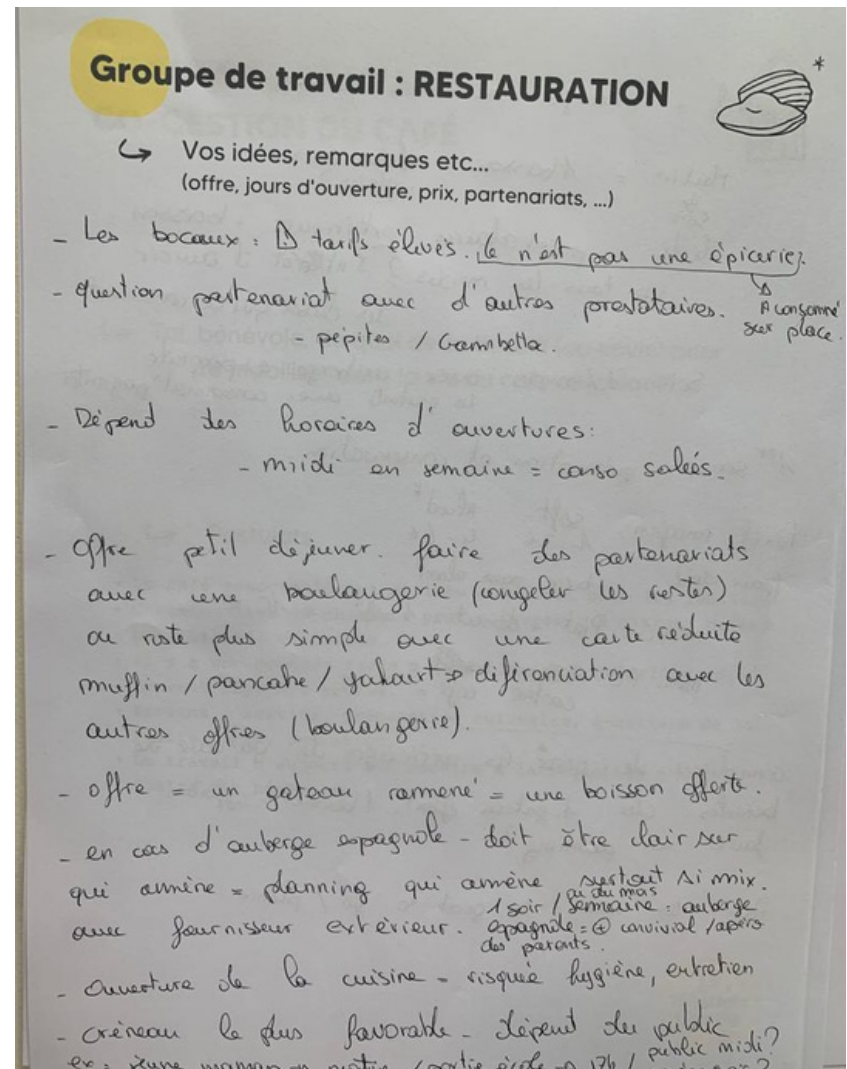 Groupe de travail : RESTAURATION
*
↳ Vos idées, remarques etc...
(offre, jours d'ouverture, prix, partenariats, ...)
- Les bocaux : ⚠ tarifs élevés. Ce n'est pas une épicerie.
↳ A consommé
sur place.
- question partenariat avec d'autres prestataires.
- pépites / Gambetta.
- Dépend des horaires d'ouvertures:
- midi en semaine = conso salées.
- Offre petit déjeuner. faire des partenariats
avec une boulangerie (congeler les restes)
ou reste plus simple avec une carte réduite
muffin / pancake / yahourt => différenciation avec les
autres offres (boulangerie).
- offre = un gateau ramené = une boisson offerte.
- en cas d'auberge espagnole - doit être clair sur
qui amène = planning qui amène surtout si mix.
avec fournisseur extérieur.
1 soir / semaine ou du mois : auberge
espagnole = ⊕ convivial / apéro
des parents.
- Ouverture de la cuisine - risquée hygiène, entretien
- créneau le plus favorable - dépend du public
public midi?
ex : jeune maman → matin / sortie école → 17h /